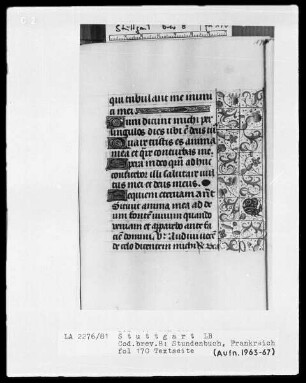 Stuttgart brev 8
qui tribulant me inimi
ci mei
Dum dicunt michi per
singulos dies ubi e deus tu
Quare tristis es anima
mea et qr conturbas me
Spera in deo qm ad huc
confitebor illi salutare vul
tus mei et deus meus
Requiem eternam ant
Sicut anima mea ad de
um fontem vivum quando
veniam et apparebo ante fa
ciem domini
de celo dicentem michi
LA 2276/81 Stuttgart LB
Cod.brev.8: Stundenbuch, Frankreich
fol 170 Textseite
(Aufn. 1965-67)